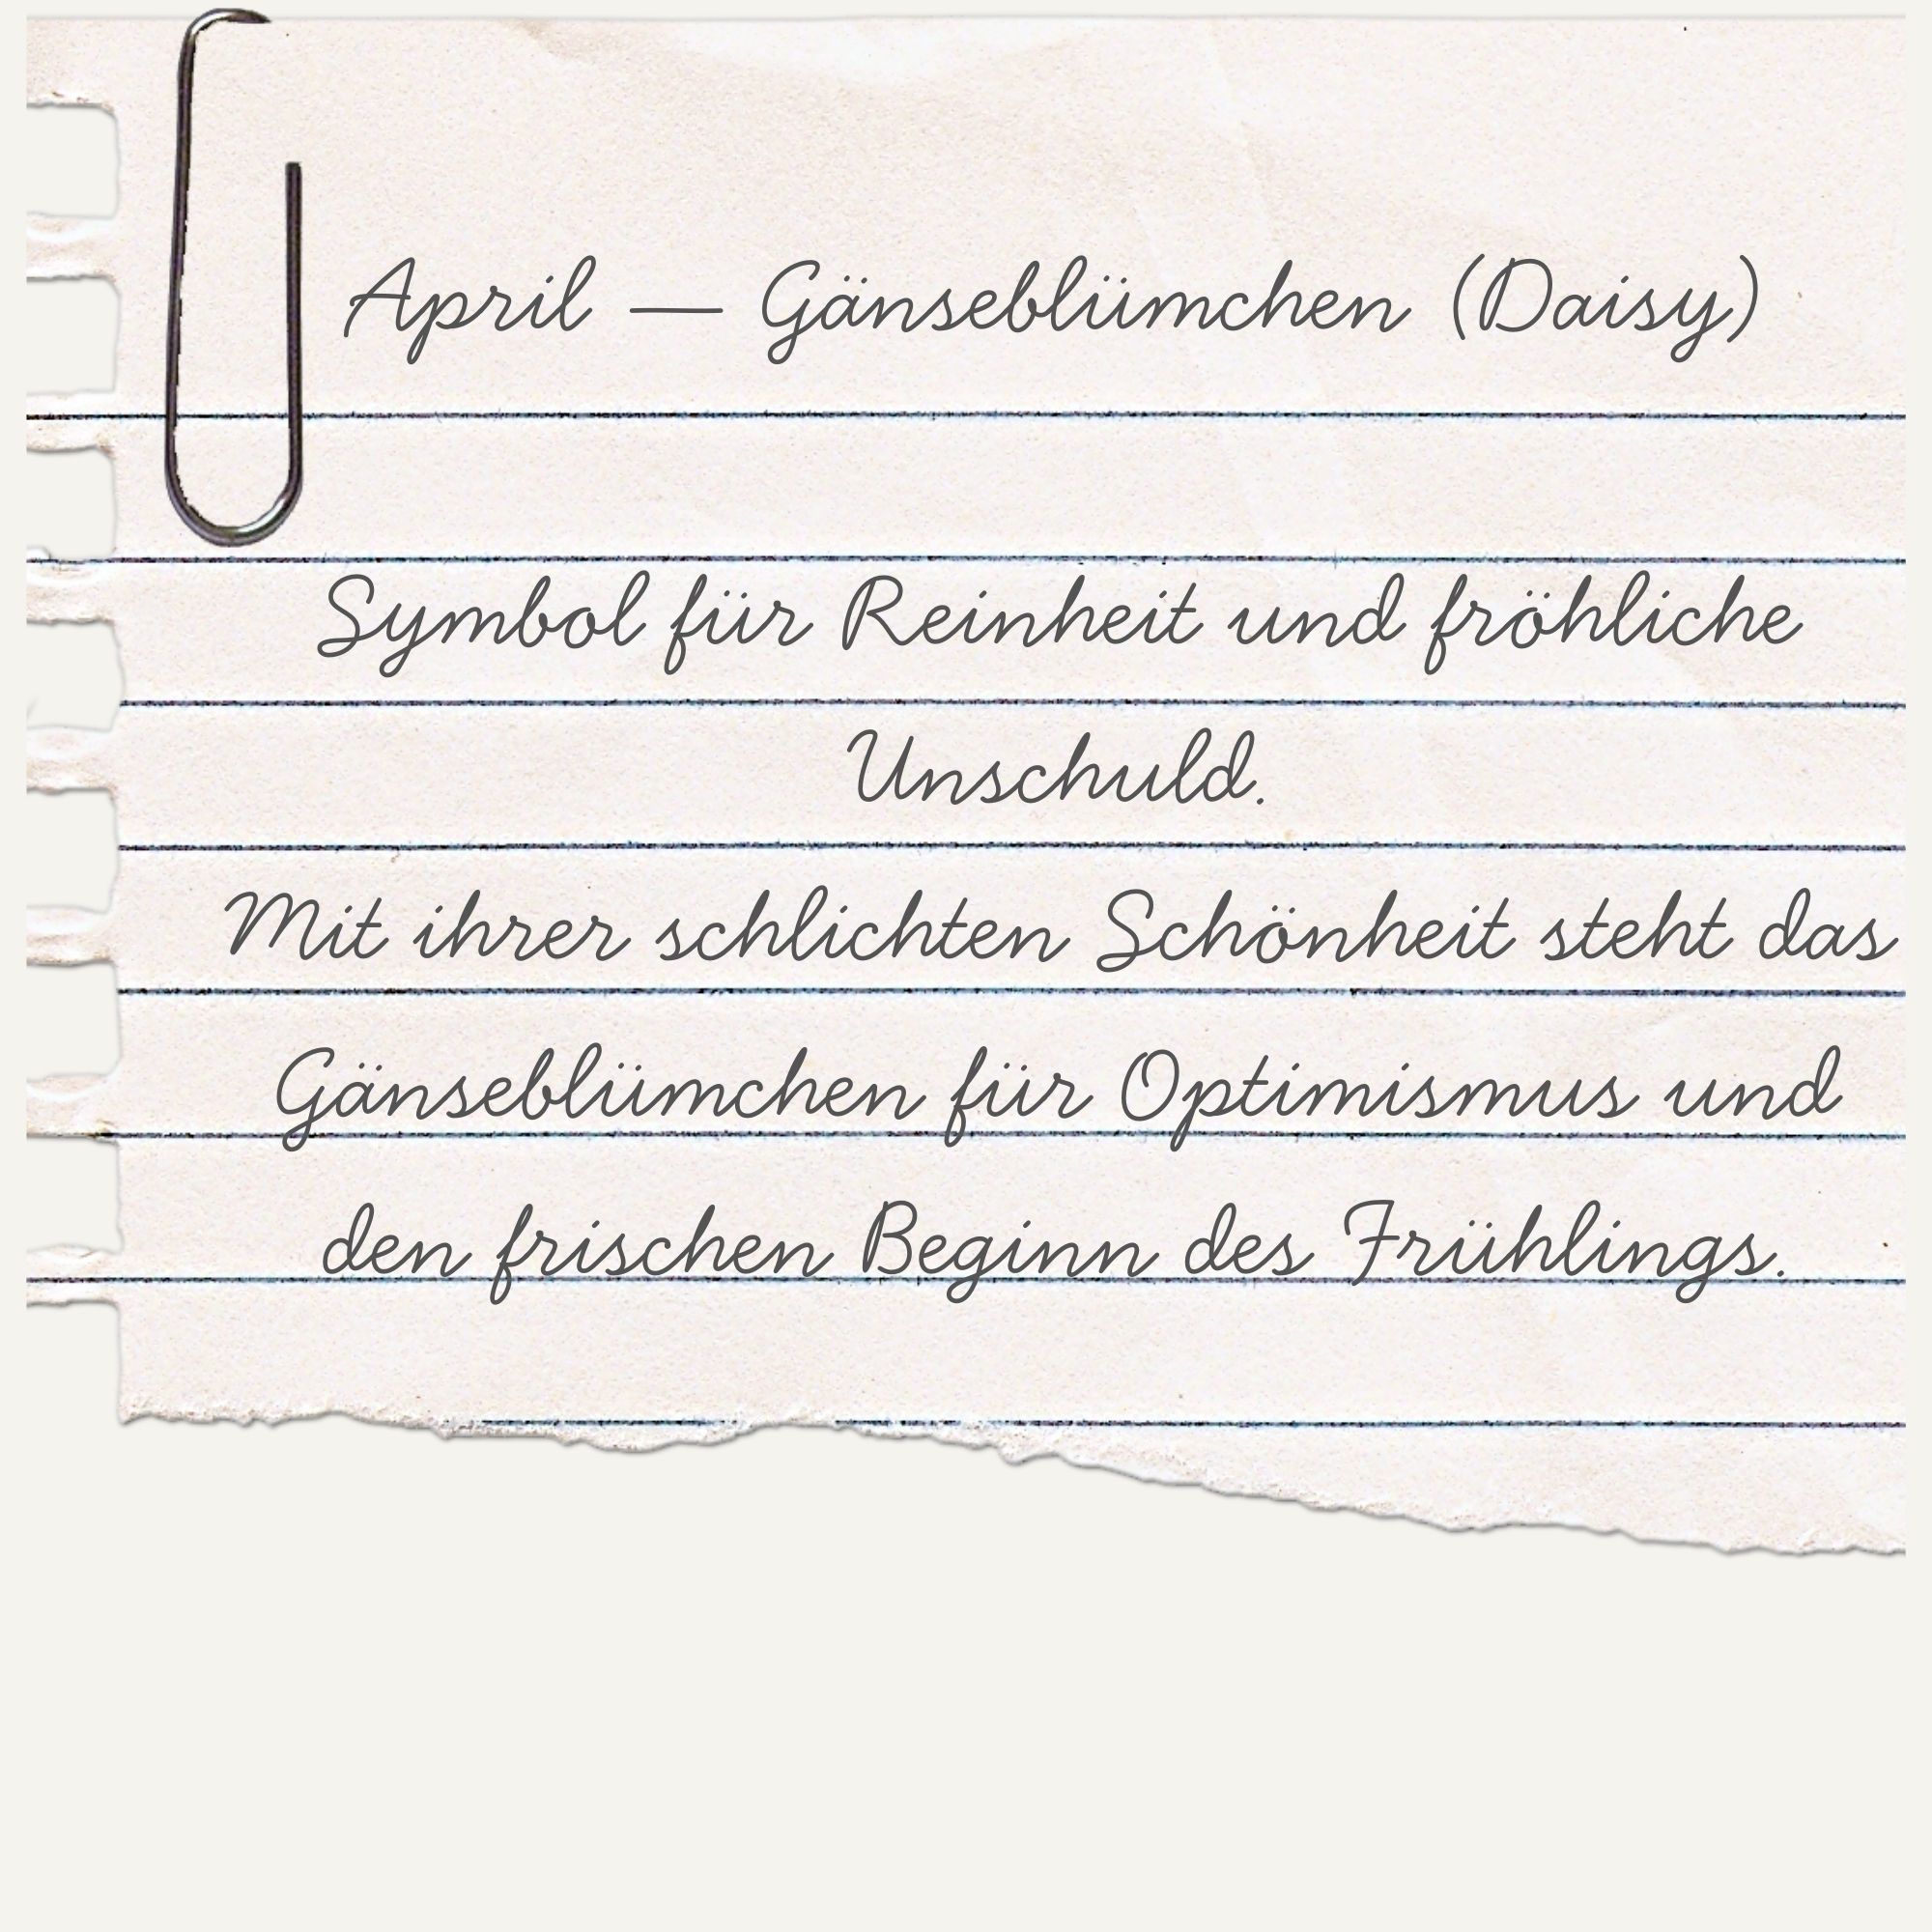 April — Gänseblümchen (Daisy)
Symbol für Reinheit und fröhliche
Unschuld.
Mit ihrer schlichten Schönheit steht das
Gänseblümchen für Optimismus und
den frischen Beginn des Frühlings.